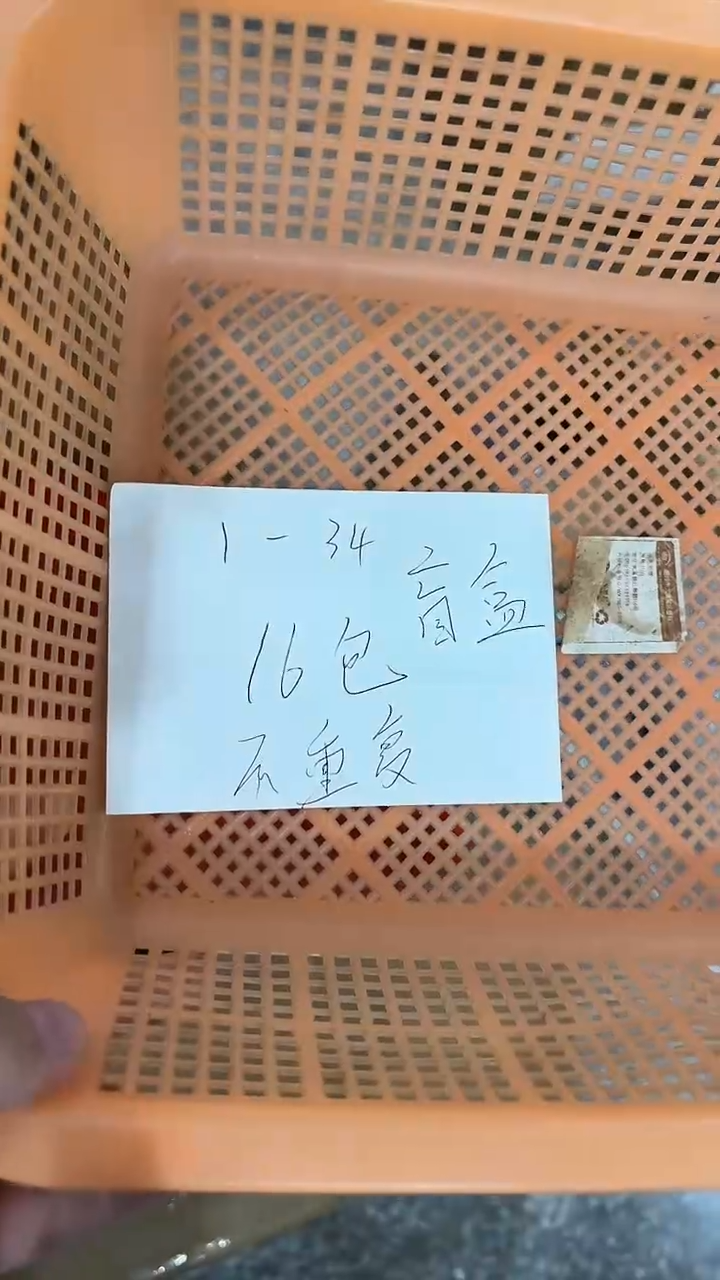 1-34
盲盒
16包
不重复